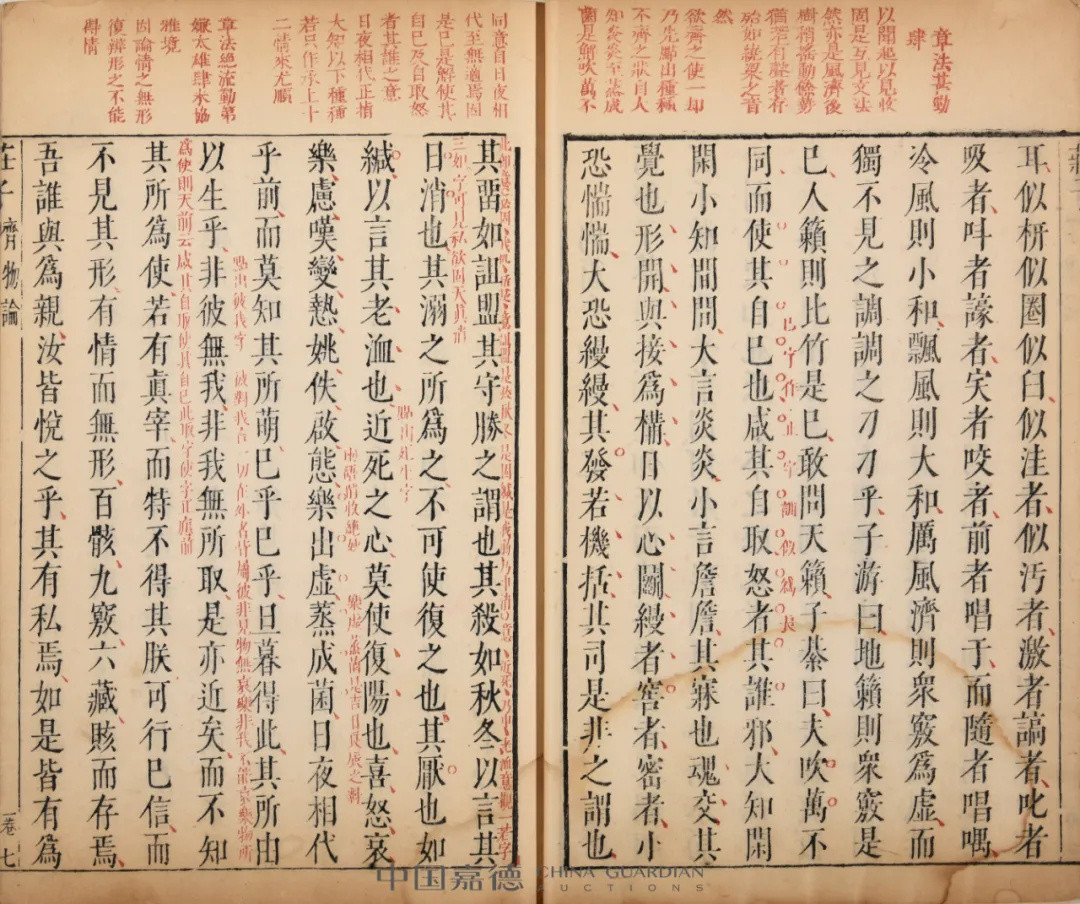 章法甚動
肆
以開起以見收
固是互見文法
然亦是風濟後
樹稍搖動餘勢
猶若有辭者存
殆如繞梁之音
然
欲齊之使一却
乃先點出種種
不齊之狀自人
至蒸成
菌是解吹萬不
耳似枅似圈似臼似洼者似汚者激者謞者叱者
吸者叫者譹者宎者咬者前者唱于而隨者唱喁
冷風則小和飄風則大和厲風濟則衆竅爲虛而
獨不見之調調之刀刀乎子游曰地籟則衆竅是
巳人籟則比竹是巳敢問天籟子綦曰夫吹萬不
巳字作止字訓似爲長
同而使其自巳也咸其自取怒者其誰邪大知閑
閑小知間間大言炎炎小言詹詹其寐也魂交其
覺也形開與接爲構日以心鬭縵者窖者密者小
恐惴惴大恐縵縵其發若機括其司是非之謂也
同意自日夜相
代至無適焉因
是已是解使其
自已及自取怒
者其誰之意
日夜相代正指
大知以下種種
若只作承上十
二情來尤順
章法絕流動第
嫌太雄肆未協
雅境
因論情之無形
復辨形之不能
得情
其畱如詛盟其守勝之謂也其殺如秋冬以言其
三如字可見私欲因天眞消
日消也其溺之所爲之不可使復之也其厭也如
點出死生字
緘以言其老洫也近死之心莫使復陽也喜怒哀
樂慮嘆變慹姚佚啟態樂出虛蒸成菌日夜相代
乎前而莫知其所萌巳乎巳乎旦暮得此其所由
點出彼我字
以生乎非彼無我非我無所取是亦近矣而不知
其所爲使若有眞宰而特不得其朕可行巳信而
不見其形有情而無形百骸九竅六藏賅而存焉
吾誰與爲親汝皆悅之乎其有私焉如是皆有爲
莊子 齊物論
卷七
中国嘉德 CHINA GUARDIAN
AUCTIONS